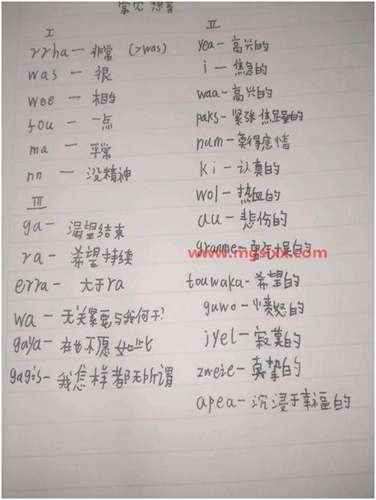 常见 想音
I
rrha — 非常 (>was)
was — 很
wee — 相当
fou — 一点
ma — 平常
nn — 没精神
III
ga — 渴望结束
ra — 希望持续
erra — 大于ra
wa — 无关紧要与我何干?
gaya — 在也不愿如此
gagis — 我怎样都无所谓
II
yea — 高兴的
i — 焦急的
waa — 高兴的
paks — 紧张焦虑的
num — 莫得感情
ki — 认真的
wol — 热血的
au — 悲伤的
granme — 的
www.mgsxx.com
touwaka — 希望的
guwo — 愤怒的
iyel — 寂寞的
zweie — 真挚的
apea — 沉浸于幸福的